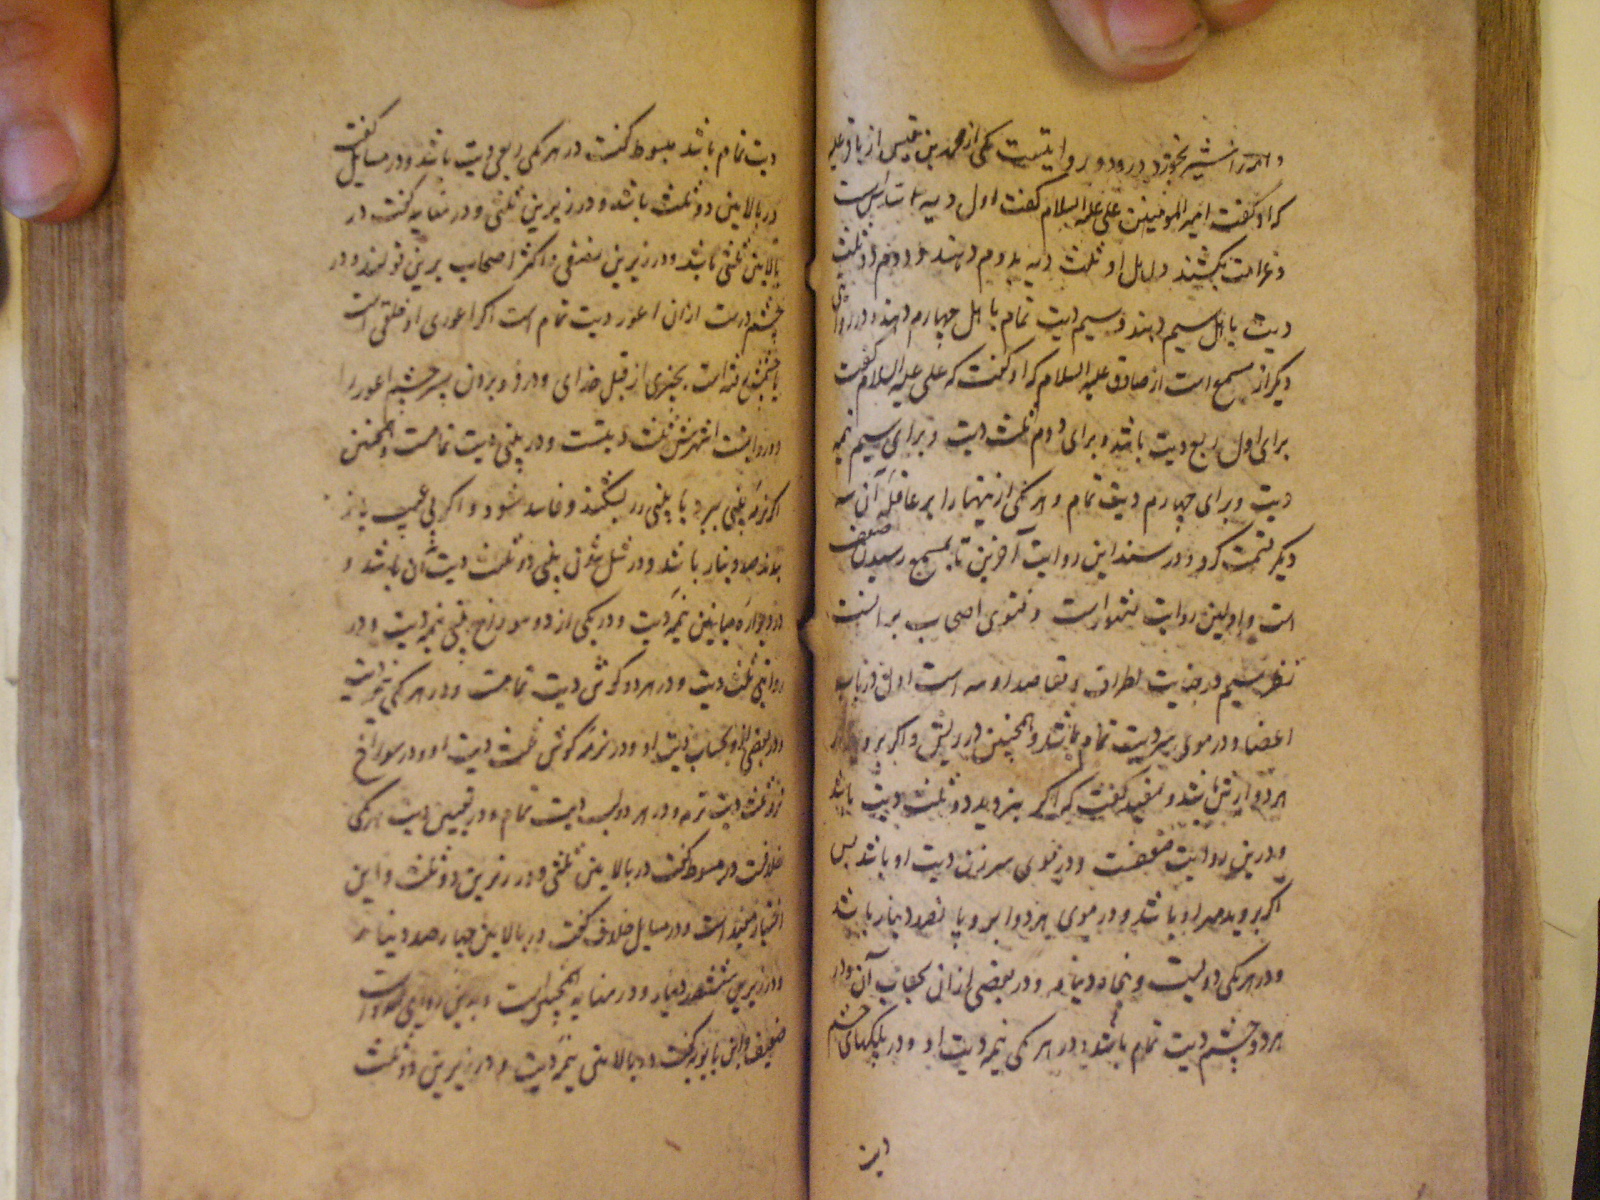 و اورا شیر بخورد درو دو روایتست یکی از محمد بن قیس از باقر علیه
که او گفت امیر المومنین علی علیه السلام گفت اول دیه است
و غرامت نکشند و اهل او ثلث دیه بدوم دهند و دوم دو ثلث
دیت با اهل سیم دهند و سیم دیت تمام با اهل چهارم دهند و در روایتی
دیگر از مسمع است از صادق علیه السلام که او گفت که علی علیه السلام گفت
برای اول ربع دیت باشد و برای دوم ثلث دیت و برای سیم نیمه
دیت و برای چهارم دیت تمام و هر یکی ازینها را بر عاقله آن سه
دیگر قسمت کرد و در سند این روایت آخرین تا بمسمع رسیدن ضعف
است و اولین روایت مشهورست و فتوی اصحاب برانست
نظر سیم در جنایت اطراف و مقاصد او سه است اول در دیات
اعضا و در موی سر دیت تمام باشد و همچنین در ریش و اگر بروید
هر دو ارش باشد و مفید گفت که اگر بنروید دو ثلث دیت باشد
و درین روایت ضعفست و در موی سر زن دیت او باشد پس
اگر بروید مهر او باشد و در موی هر دو ابرو پانصد دینار باشد
و در هر یکی دویست و پنجاه دینار و در بعضی ازان بحساب آن و در
هر دو چشم دیت تمام باشد و در هر یکی نیمه دیت او و در پلکهای چشم
دیت
دیت تمام باشد مبسوط گفت در هر یکی ربعی دیت باشد و در مسایل گفت
در بالایین دو ثلث باشد و در زیرین ثلثی و در نهایه گفت در
بالایین ثلثی باشد و در زیرین نصفی و اکثر اصحاب برین قولند و در
چشم درست ازان اعور دیت تمام است اگر اعوری او خلقی است
یا چشمش رفته است بچیزی از قبل خدای و در فرو بردن چشم اعور را
دو روایت اشهرش ثلث دیتست و در بینی دیت تمامت و همچنین
اگر نرمه بینی ببرد یا بینی را بشکند و فاسد شود و اگر بی عیب باز
بندد صد دینار باشد و در شل شدن بینی دو ثلث دیت آن باشد و
در دیواره میانین نیمه دیت و در یکی از دو سوراخ بینی نیمه دیت و در
روایتی ثلث دیت و در هر دو گوش دیت تمامت و در هر یکی نیمه دیت
و در بعضی ازو بحساب دیت او و در نرمه گوش ثلث دیت او و در سوراخ
او ثلث دیت نرمه و در هر دو لب دیت تمام و در تعیین دیت هر یکی
خلافت در مبسوط گفت در بالایین ثلثی و در زیرین دو ثلث و این
اختیار مفید است و در مسایل خلاف گفت در بالایین چهارصد دینار
و در زیرین ششصد دینار و در نهایه همچنین است و بدین روایتی است
ضعیف و ابن بابویه گفت در بالایین نیمه دیت و در زیرین دو ثلث